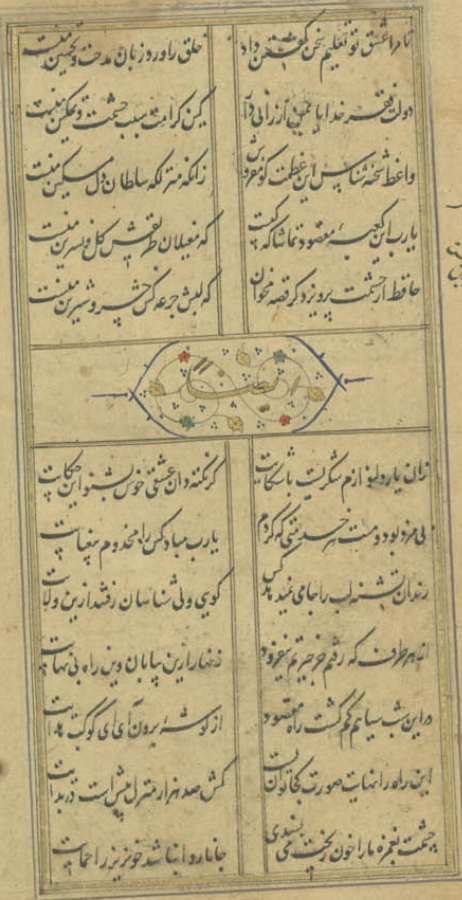 تا مرا عشق تو تعلیم سخن گفتن داد خلق را ورد زبان مدحت و تحسین منست
دولت فقر خدایا بمن ارزانی دار کین کرامت سبب حشمت و تمکین منست
واعظ شحنه شناس این عظمت گو مفروش زانکه منزلگه سلطان دل مسکین منست
یارب این کعبه مقصود تماشاگه کیست که مغیلان طریقش گل و نسرین منست
حافظ از حشمت پرویز دگر قصه مخوان که لبش جرعه کش خسرو شیرین منست
ایضا
زان یار دلنوازم شکریست با شکایت گر نکته دان عشقی خوش بشنو این حکایت
بی مزد بود و منت هر خدمتی که کردم یارب مباد کس را مخدوم بی عنایت
رندان تشنه لب را جامی نمیدهد کس گویی ولی شناسان رفتند ازین ولایت
از هر طرف که رفتم جز حیرتم نیفزود زنهار ازین بیابان وین راه بی نهایت
در این شب سیاهم گم گشت راه مقصود از گوشه برون آی ای کوکب هدایت
این راه را نهایت صورت کجا توان بست کش صد هزار منزل بیش است در بدایت
چشمت بغمزه ما را خون ریخت می پسندی جانا روا نباشد خونریز را حمایت